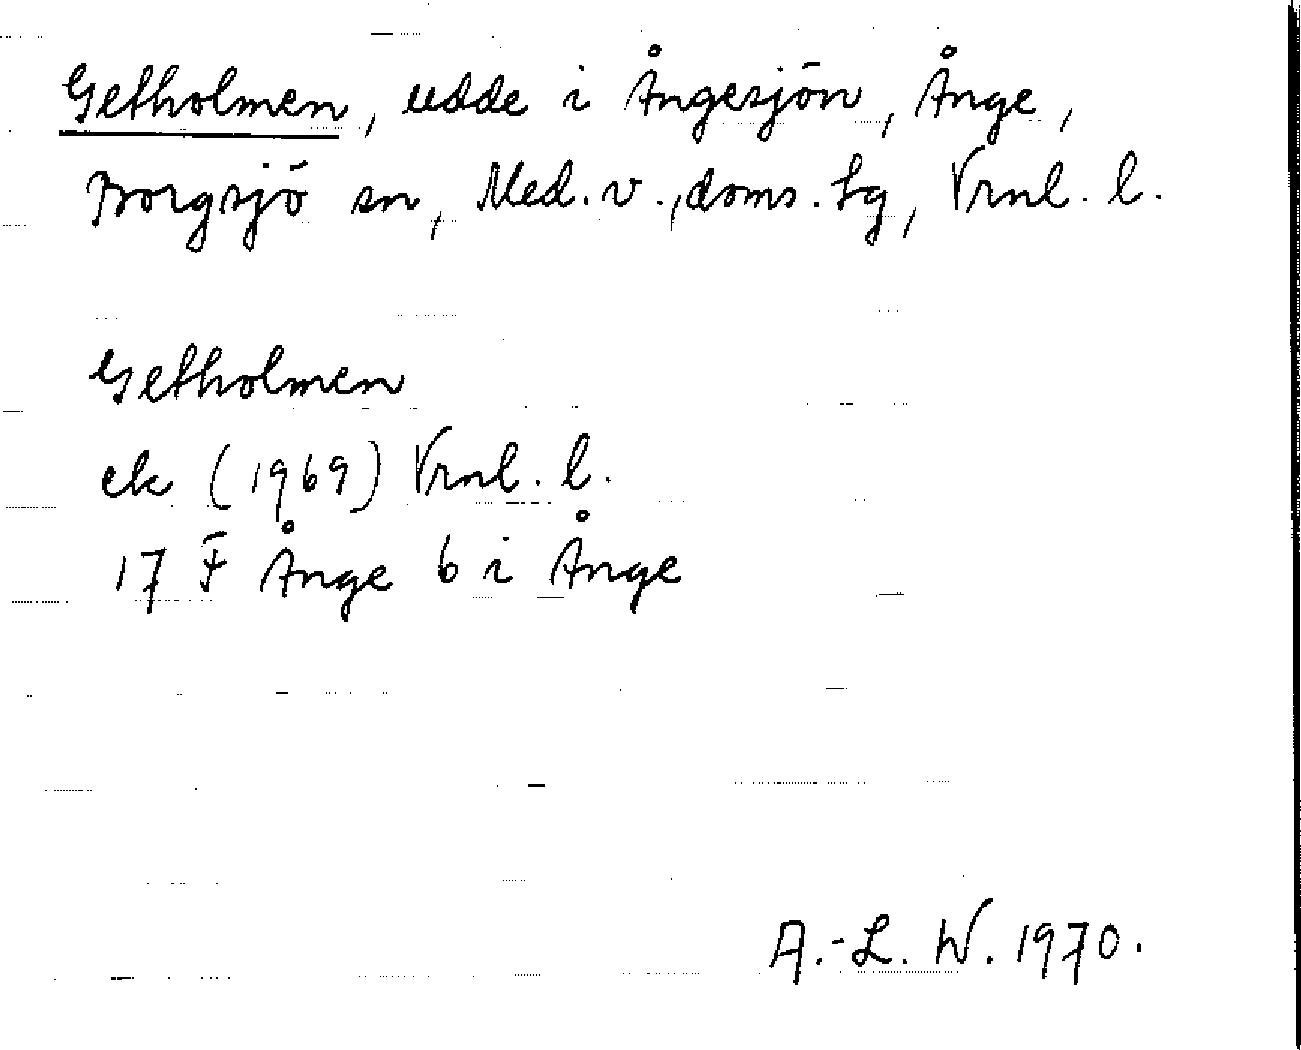 Getholmen, udde i Ångesjön, Ånge,
Borgsjö sn, Med. v., doms. tg, Vrnl. l.
Getholmen
ek (1969) Vrnl. l.
17 F Ånge 6 i Ånge
A.-L. W. 1970.